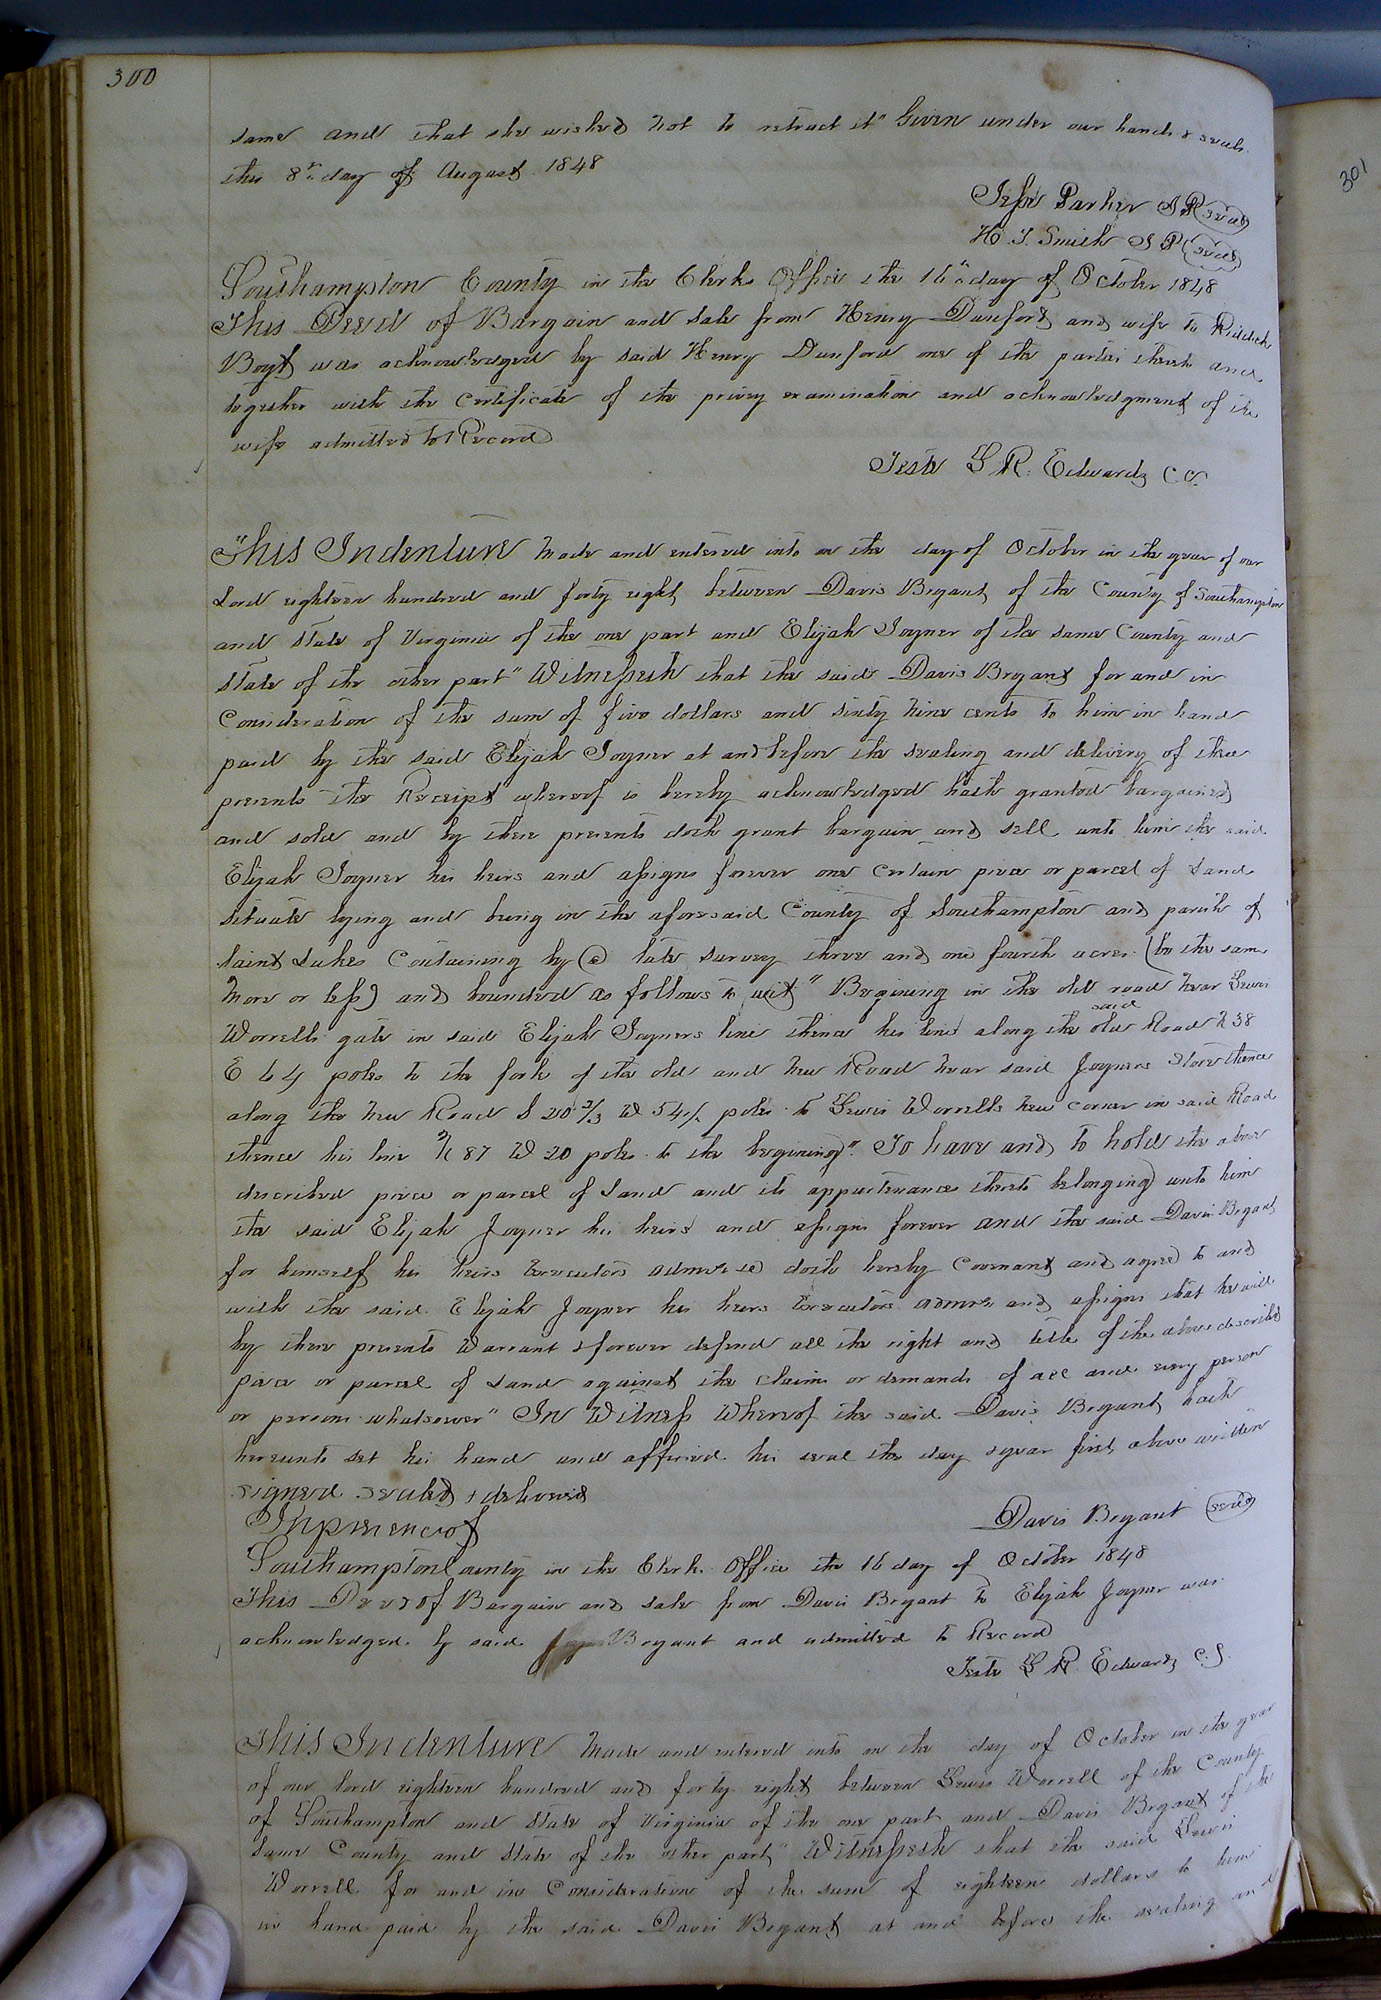 300
same and that she wished not to retract it" Given under our hands & seals
this 8th day of August 1848
Jesse Parker J P (seal)
H. T. Smith J P (seal)
301
Southampton County in the Clerks Office the 16th day of October 1848
This Deed of Bargain and Sale from Henry Dunford and wife to Riddick
Boyt was acknowledged by said Henry Dunford one of the parties thereto and
together with the Certificate of the privy examination and acknowledgment of the
wife admitted to Record
Teste L R. Edwards C. C.
"This Indenture Made and entered into on the day of October in the year of our
Lord eighteen hundred and forty eight between Davis Bryant of the County of Southampton
and State of Virginia of the one part and Elijah Joyner of the same County and
State of the other part" Witnesseth that the said Davis Bryant for and in
Consideration of the sum of five dollars and sixty nine cents to him in hand
paid by the said Elijah Joyner at and before the sealing and delivery of these
presents the Receipt whereof is hereby acknowledged hath granted bargained
and sold and by these presents doth grant bargain and sell unto him the said
Elijah Joyner his heirs and assigns forever one certain piece or parcel of Land
situate lying and being in the aforesaid County of Southampton and parish of
Saint Lukes Containing by @ late survey three and one fourth acres (be the same
more or less) and bounded as follows to wit" Begining in the old road near Lewis
Worrells gate in said Elijah Joyners line thence his line along the said old Road N 38
E 64 poles to the fork of the old and new Road near said Joyners Store thence
along the new Road S 20 2/3 W 54 1/2 poles to Lewis Worrells new corner in said Road
thence his line N 87 W 20 poles to the begining". To have and to hold the above
described piece or parcel of Land and its appurtenances thereto belonging unto him
the said Elijah Joyner his heirs and assigns forever and the said Davis Bryant
for himself his heirs Executors admrs &c doth hereby Covenant and agree to and
with the said Elijah Joyner his heirs Executors admrs and assigns that he will
by these presents Warrant & forever defend all the right and title of the above described
piece or parcel of Land against the claims or demands of all and every person
or persons whatsoever" In Witness Whereof the said Davis Bryant hath
hereunto set his hand and affixed his seal the day & year first above written
signed sealed & delivered
In presence of
Davis Bryant (seal)
Southampton County in the Clerks Office the 16 day of October 1848
This Deed of Bargain and Sale from Davis Bryant to Elijah Joyner was
acknowledged by said Bryant and admitted to Record
Teste L R. Edwards C. C.
This Indenture Made and entered into on the day of October in the year
of our lord eighteen hundred and forty eight between Lewis Worrell of the County
of Southampton and State of Virginia of the one part and Davis Bryant of the
same County and State of the other part" Witnesseth that the said Lewis
Worrell for and in Consideration of the sum of eighteen dollars to him
in hand paid by the said Davis Bryant at and before the sealing and